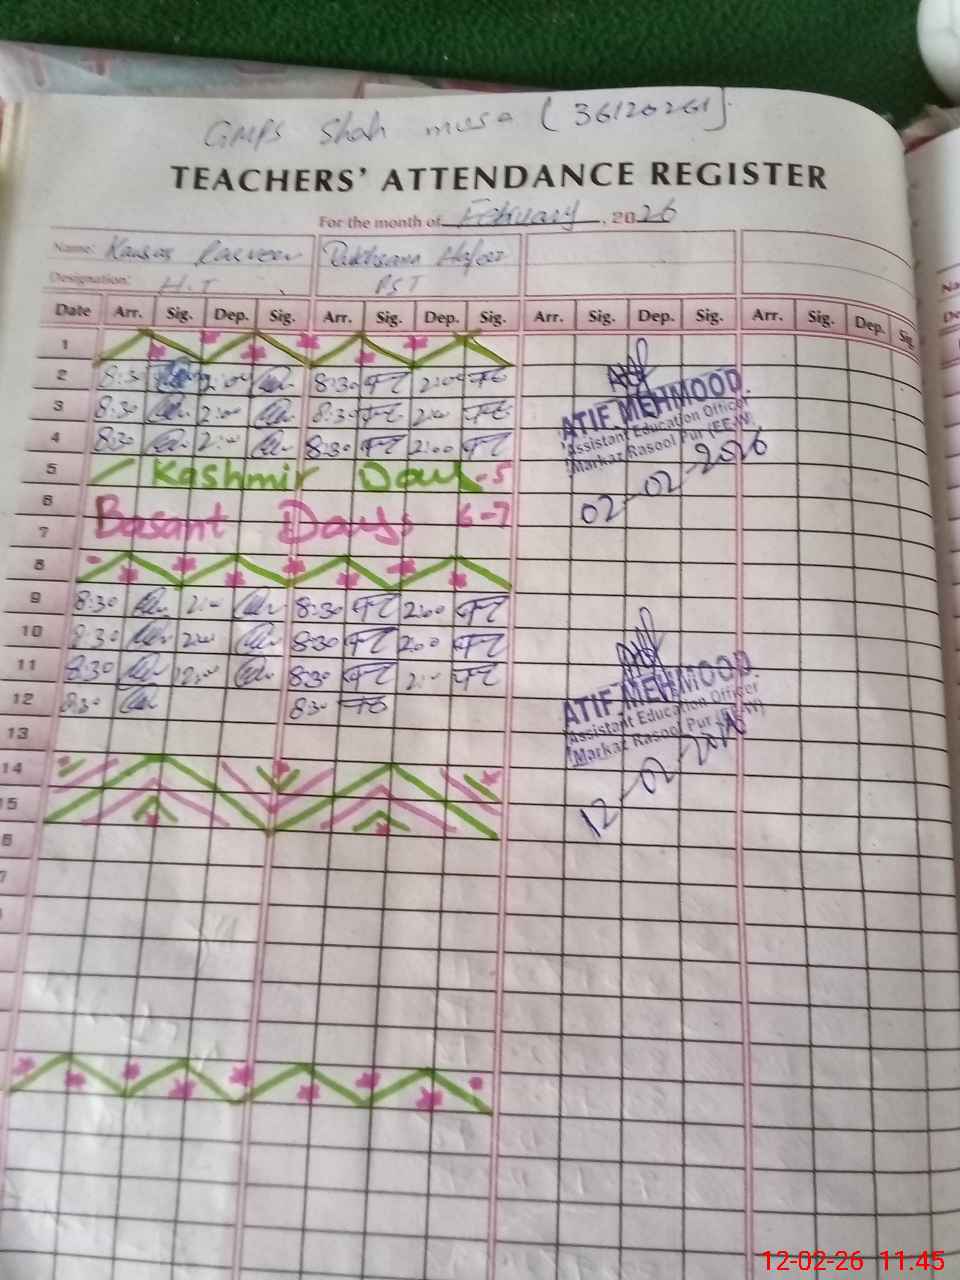 GMPS Shah musa (36120261)
TEACHERS' ATTENDANCE REGISTER
For the month of February, 2026
Name: Kausar Parveen Rukhsana Hafeez
Designation: H.T PST
Date Arr. Sig. Dep. Sig. Arr. Sig. Dep. Sig. Arr. Sig. Dep. Sig. Arr. Sig. Dep. Sig.
1
2 8:30 2:00 8:30 2:00
3 8:30 2:00 8:30 2:00
4 8:30 2:00 8:30 2:00
5 Kashmir Day - 5
6 Basant Days 6-7
7
8
9 8:30 2:00 8:30 2:00
10 8:30 2:00 8:30 2:00
11 8:30 8:30 2:00
12 8:30 8:30
13
14
15
6
7
ATIF MEHMOOD.
Assistant Education Officer
Markaz Rasool Pur (EE-W)
02-02-2026
ATIF MEHMOOD.
Assistant Education Officer
Markaz Rasool Pur (EE-W)
12-02-2026
Na
De
12-02-26 11.45